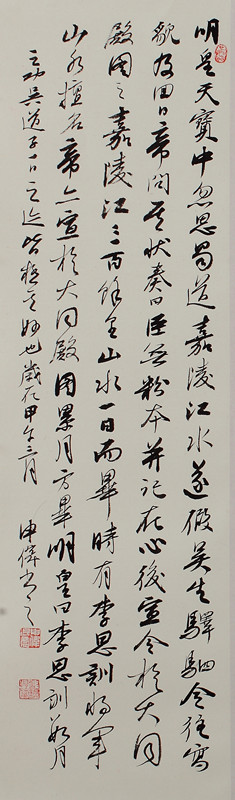 明皇天寶中忽思蜀道嘉陵江水遂假吳生驛駟令往寫
貌及回日帝問其狀奏曰臣無粉本并記在心後宣令於大同
殿圖之嘉陵江三百餘里山水一日而畢時有李思訓將軍
山水擅名帝亦宣於大同殿圖累月方畢明皇曰李思訓數月
之功吳道子一日之迹皆極其妙也歲在甲午三月